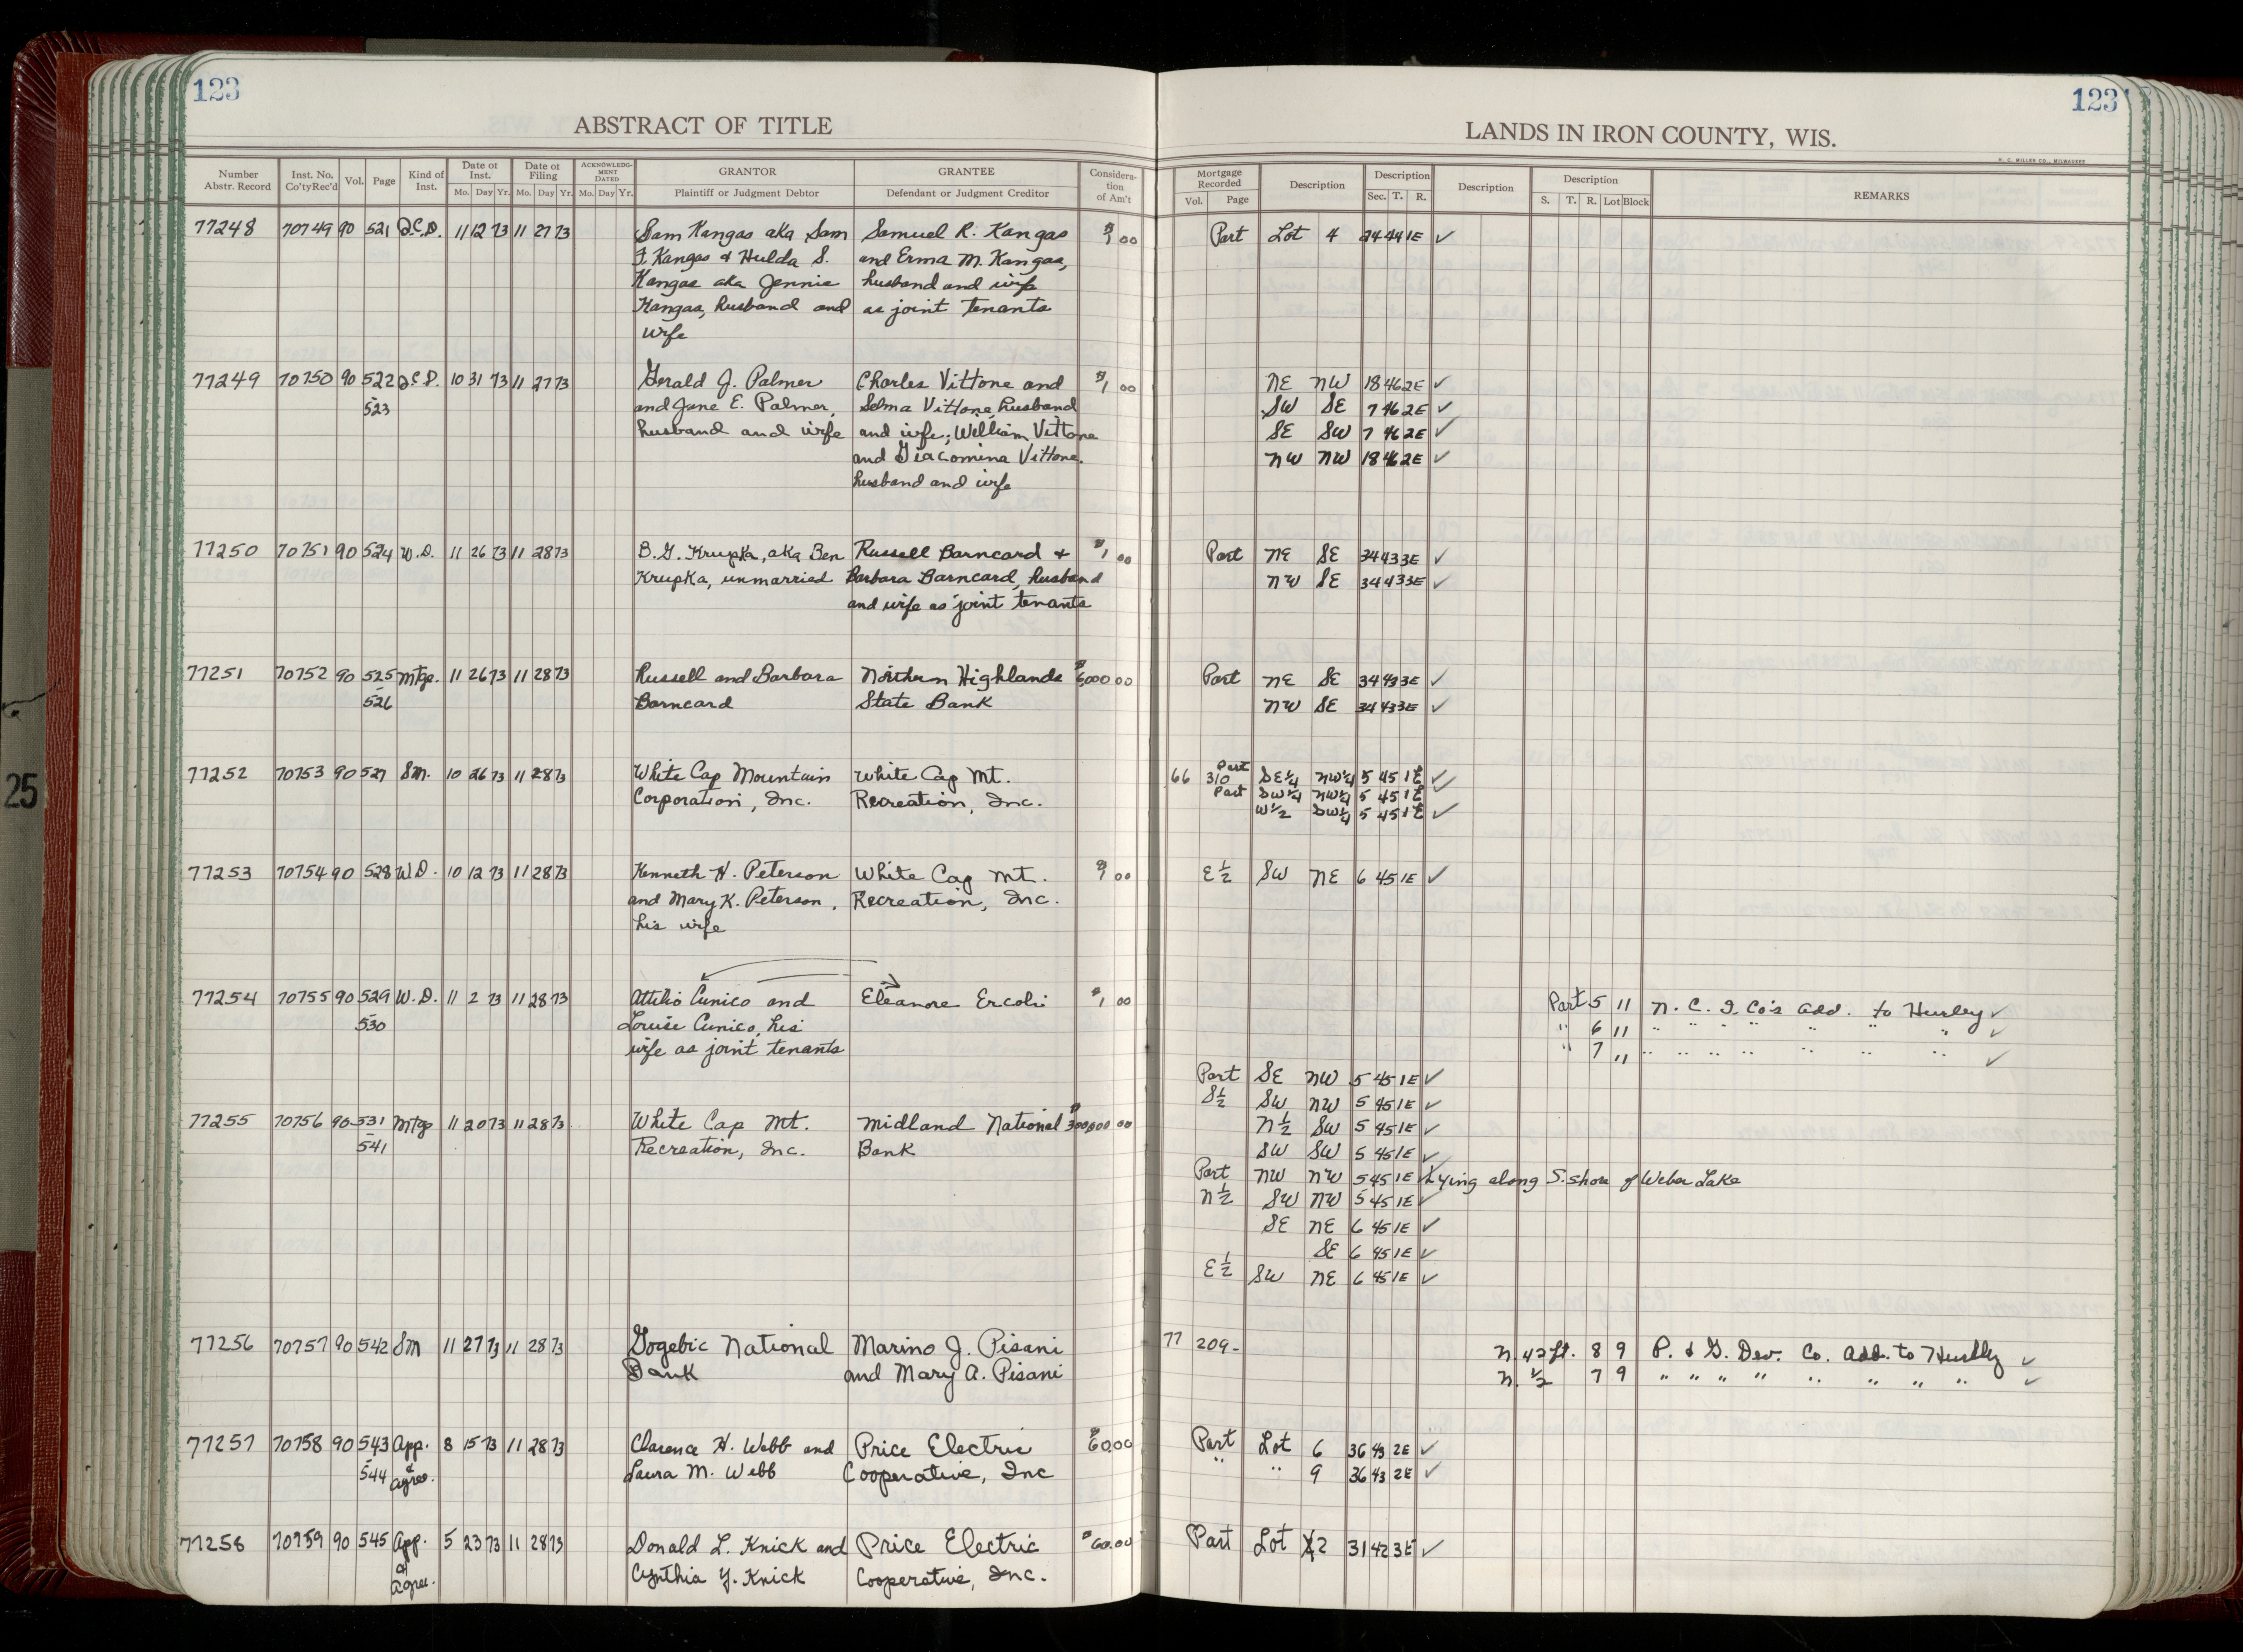 123
123
ABSTRACT OF TITLE
LANDS IN IRON COUNTY, WIS.
H. C. MILLER CO., MILWAUKEE
Number Abstr. Record Inst. No. Co'ty Rec'd Vol. Page Kind of Inst. Date of Inst. Mo. Day Yr. Date of Filing Mo. Day Yr. ACKNOWLEDGMENT DATED Mo. Day Yr. GRANTOR Plaintiff or Judgment Debtor GRANTEE Defendant or Judgment Creditor Consideration of Am't
Mortgage Recorded Vol. Page Description Description Sec. T. R. Description Description S. T. R. Lot Block REMARKS
77248 70749 90 521 Q.C.D. 11 12 73 11 27 73 Sam Kangas aka Sam Samuel R. Kangas $1 00 Part Lot 4 24 44 1E ✓
F. Kangas & Hulda S. and Erma M. Kangas,
Kangas aka Jennie husband and wife
Kangas, husband and as joint tenants
wife
77249 70750 90 522 Q.C.D. 10 31 73 11 27 73 Gerald J. Palmer Charles Vittone and $1 00 NE NW 18 46 2E ✓
- 523 and Jane E. Palmer, Selma Vittone, husband SW SE 7 46 2E ✓
husband and wife and wife; William Vittone SE SW 7 46 2E ✓
and Giacomina Vittone. NW NW 18 46 2E ✓
husband and wife
77250 70751 90 524 W.D. 11 26 73 11 28 73 B. G. Krupka, aka Ben Russell Barncard & $1 00 Part NE SE 34 43 3E ✓
Krupka, unmarried Barbara Barncard, husband NW SE 34 43 3E ✓
and wife as joint tenants
77251 70752 90 525 Mtge. 11 26 73 11 28 73 Russell and Barbara Northern Highlands $6,000 00 Part NE SE 34 43 3E ✓
- 526 Barncard State Bank NW SE 34 43 3E ✓
77252 70753 90 527 SM. 10 26 73 11 28 73 White Cap Mountain White Cap Mt. 66 310 Part SE¼ NW¼ 5 45 1E ✓
Corporation, Inc. Recreation, Inc. Part SW¼ NW¼ 5 45 1E
W½ SW¼ 5 45 1E ✓
77253 70754 90 528 W.D. 10 12 73 11 28 73 Kenneth H. Peterson White Cap Mt. $1 00 E½ SW NE 6 45 1E ✓
and Mary K. Peterson, Recreation, Inc.
his wife
77254 70755 90 529 W.D. 11 2 73 11 28 73 Attilio Cunico and Eleanore Ercoli $1 00 Part 5 11 N. C. I. Co's Add. to Hurley ✓
- 530 Louise Cunico, his " 6 11 " " " " " " " ✓
wife as joint tenants " 7 11 " " " " " " " ✓
Part SE NW 5 45 1E ✓
S½ SW NW 5 45 1E ✓
77255 70756 90 531 Mtge 11 20 73 11 28 73 White Cap Mt. Midland National $300,000 00 N½ SW 5 45 1E ✓
- 541 Recreation, Inc. Bank SW SW 5 45 1E ✓
Part NW NW 5 45 1E ✓ Lying along S. shore of Weber Lake
N½ SW NW 5 45 1E ✓
SE NE 6 45 1E ✓
SE 6 45 1E ✓
E½ SW NE 6 45 1E ✓
77256 70757 90 542 SM 11 27 73 11 28 73 Gogebic National Marino J. Pisani 77 209- N. 42 ft. 8 9 P. & G. Dev. Co. Add. to Hurley ✓
Bank and Mary A. Pisani N. ½ 7 9 " " " " " " " " ✓
77257 70758 90 543 App. 8 15 73 11 28 73 Clarence H. Webb and Price Electric $60.00 Part Lot 6 36 43 2E ✓
- 544 & Agree. Laura M. Webb Cooperative, Inc " " 9 36 43 2E ✓
77258 70759 90 545 App. 5 23 73 11 28 73 Donald L. Knick and Price Electric $60.00 Part Lot 2 31 42 3E ✓
& Agree. Cynthia Y. Knick Cooperative, Inc.
25